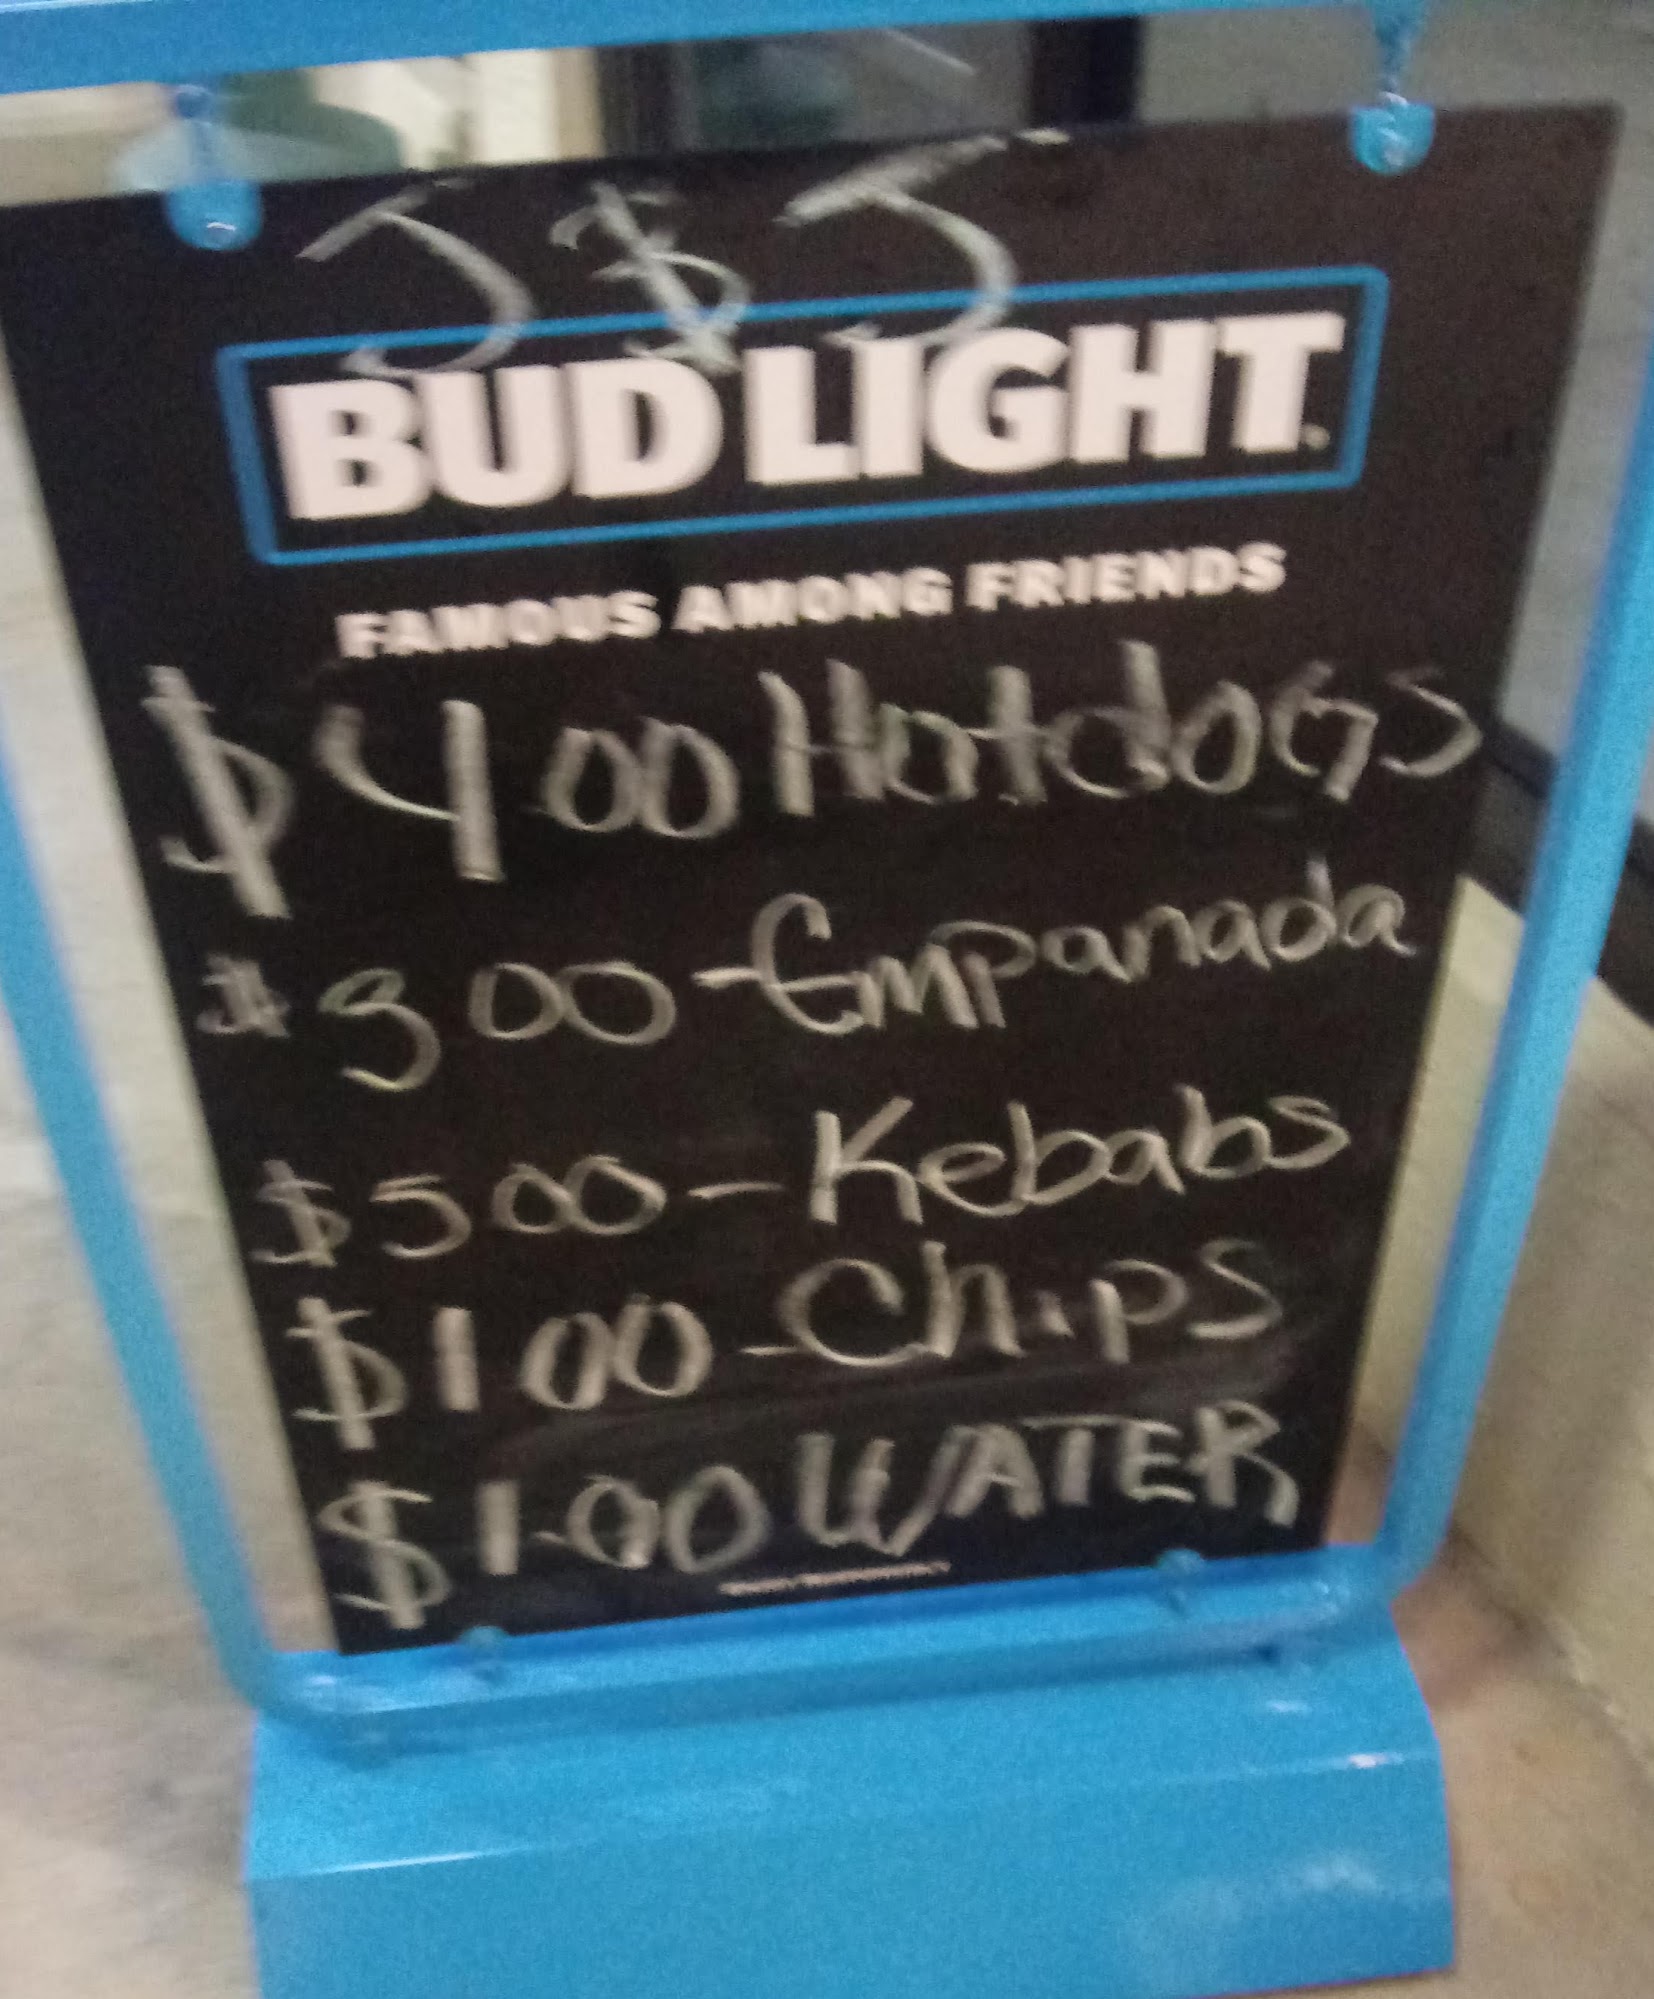 J & J
BUD LIGHT
FAMOUS AMONG FRIENDS
$400 HotdoGS
$300-Empanada
$500-Kebabs
$100-Chips
$1.00 WATER